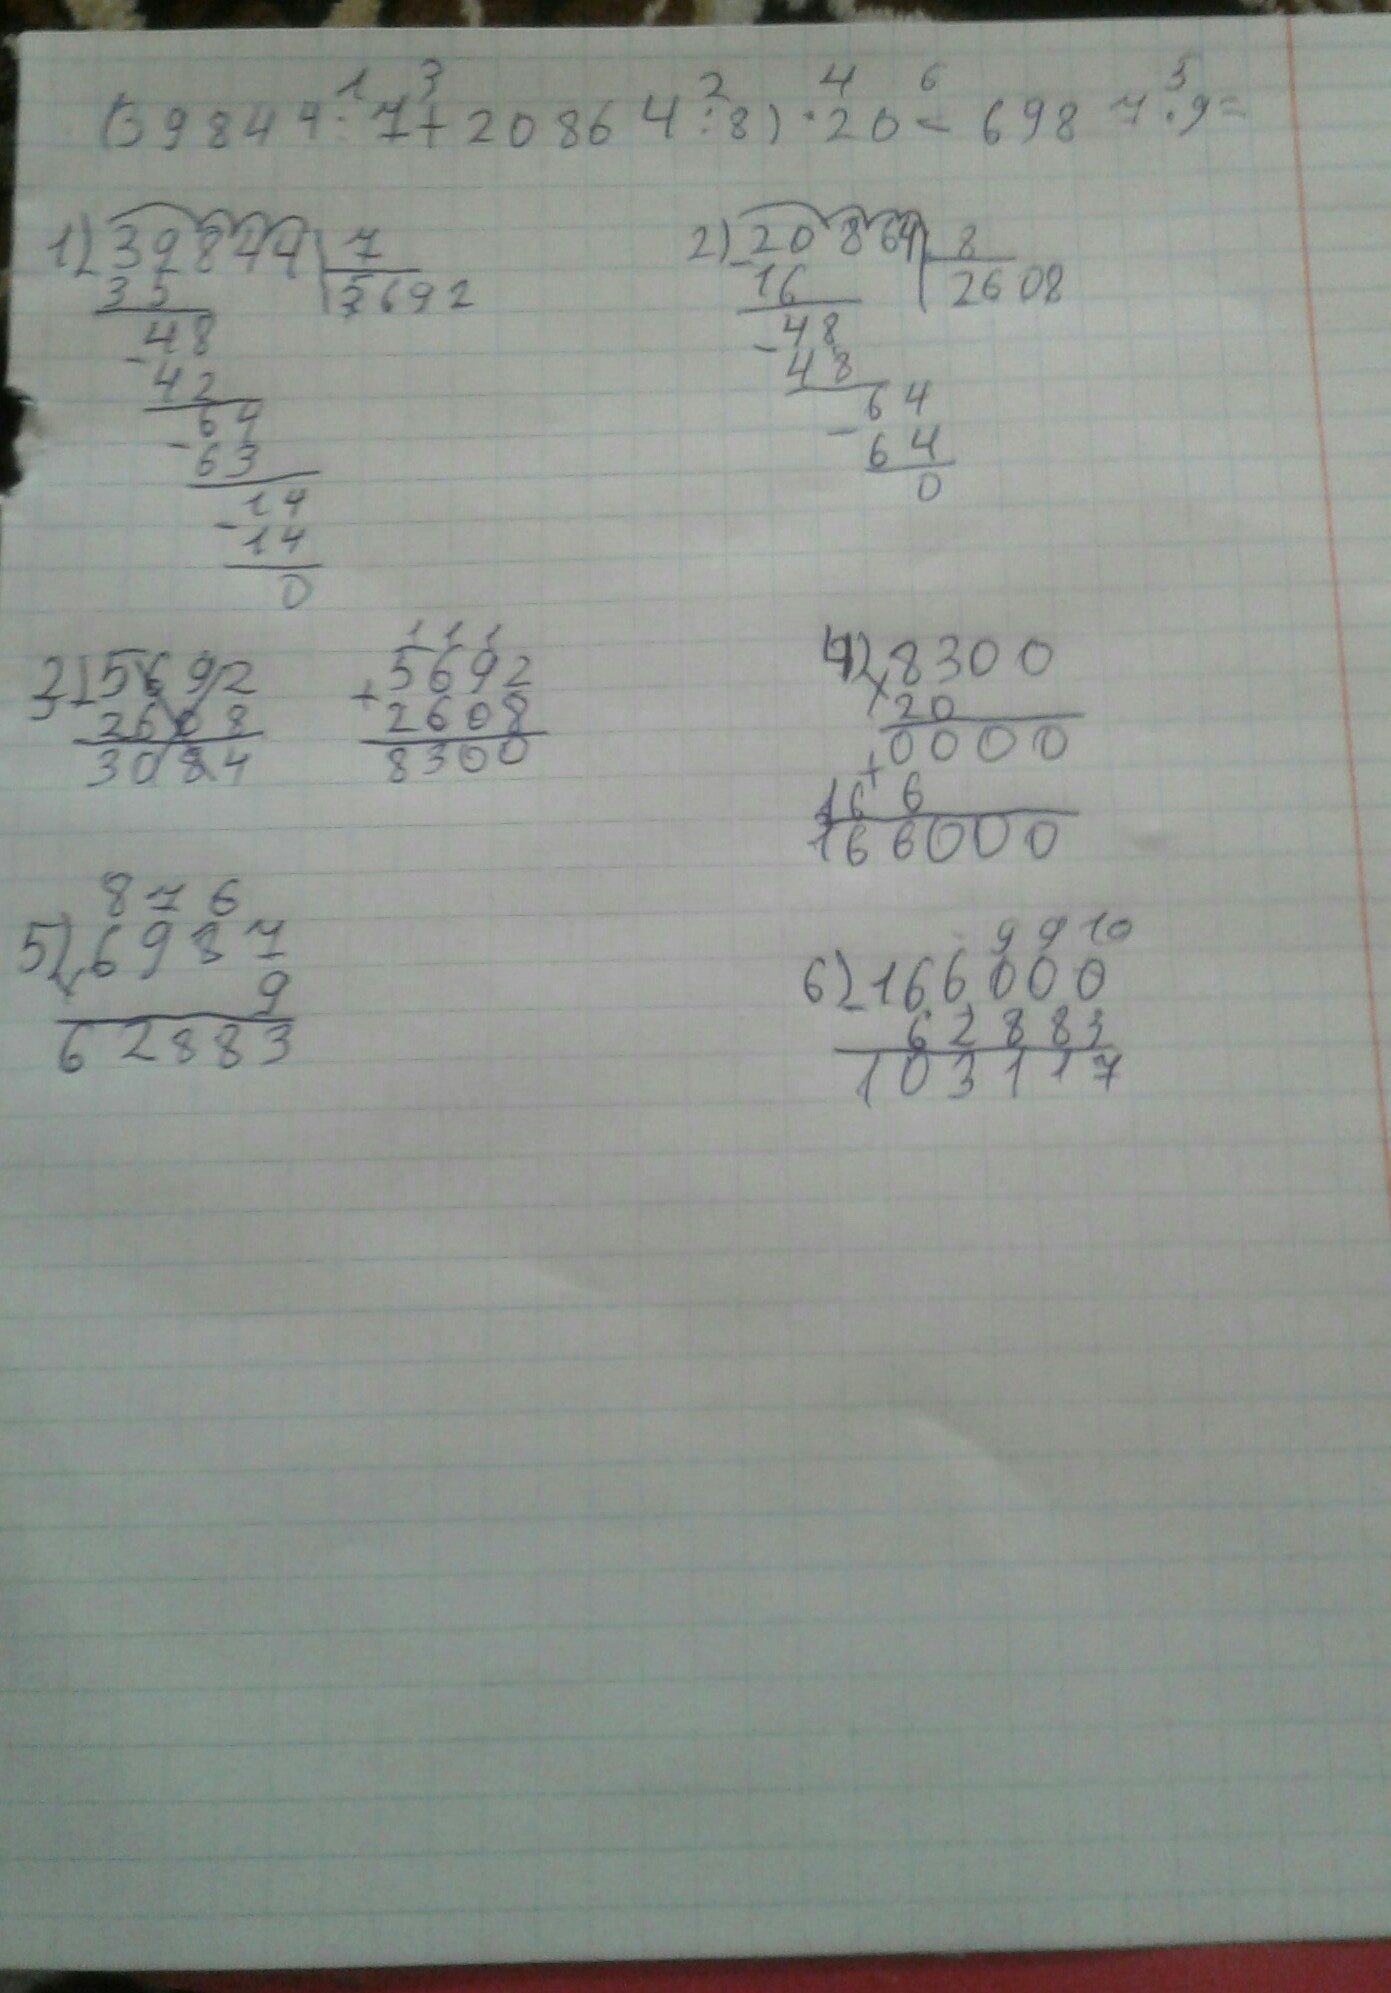 (39844:7+20864:8)·20-6987·9=
1 3 2 4 6 5
1) 39844 7
35 5692
48
- 42
64
- 63
14
- 14
0
2) 20864 8
- 16 2608
48
- 48
64
- 64
0
3) 5692
2608
3084
1 1 1
5692
+ 2608
8300
4) 8300
× 20
0000
+
166
166000
8 7 6
5) 6987
× 9
62883
9 9 10
6) 166000
62883
103117